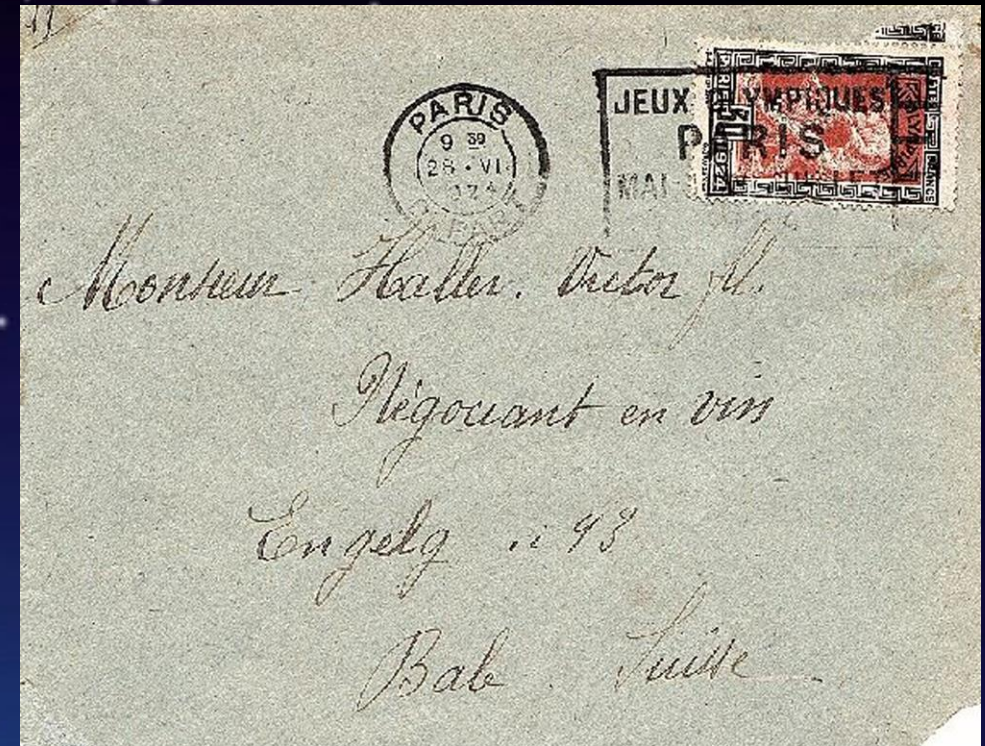 PARIS
9 30
28 • VI
JEUX OLYMPIQUES
PARIS
MAI
PARIS 1924
Monsieur Haller. Victor fil.
Négociant en vin
Engelg. 93
Bale. Suisse